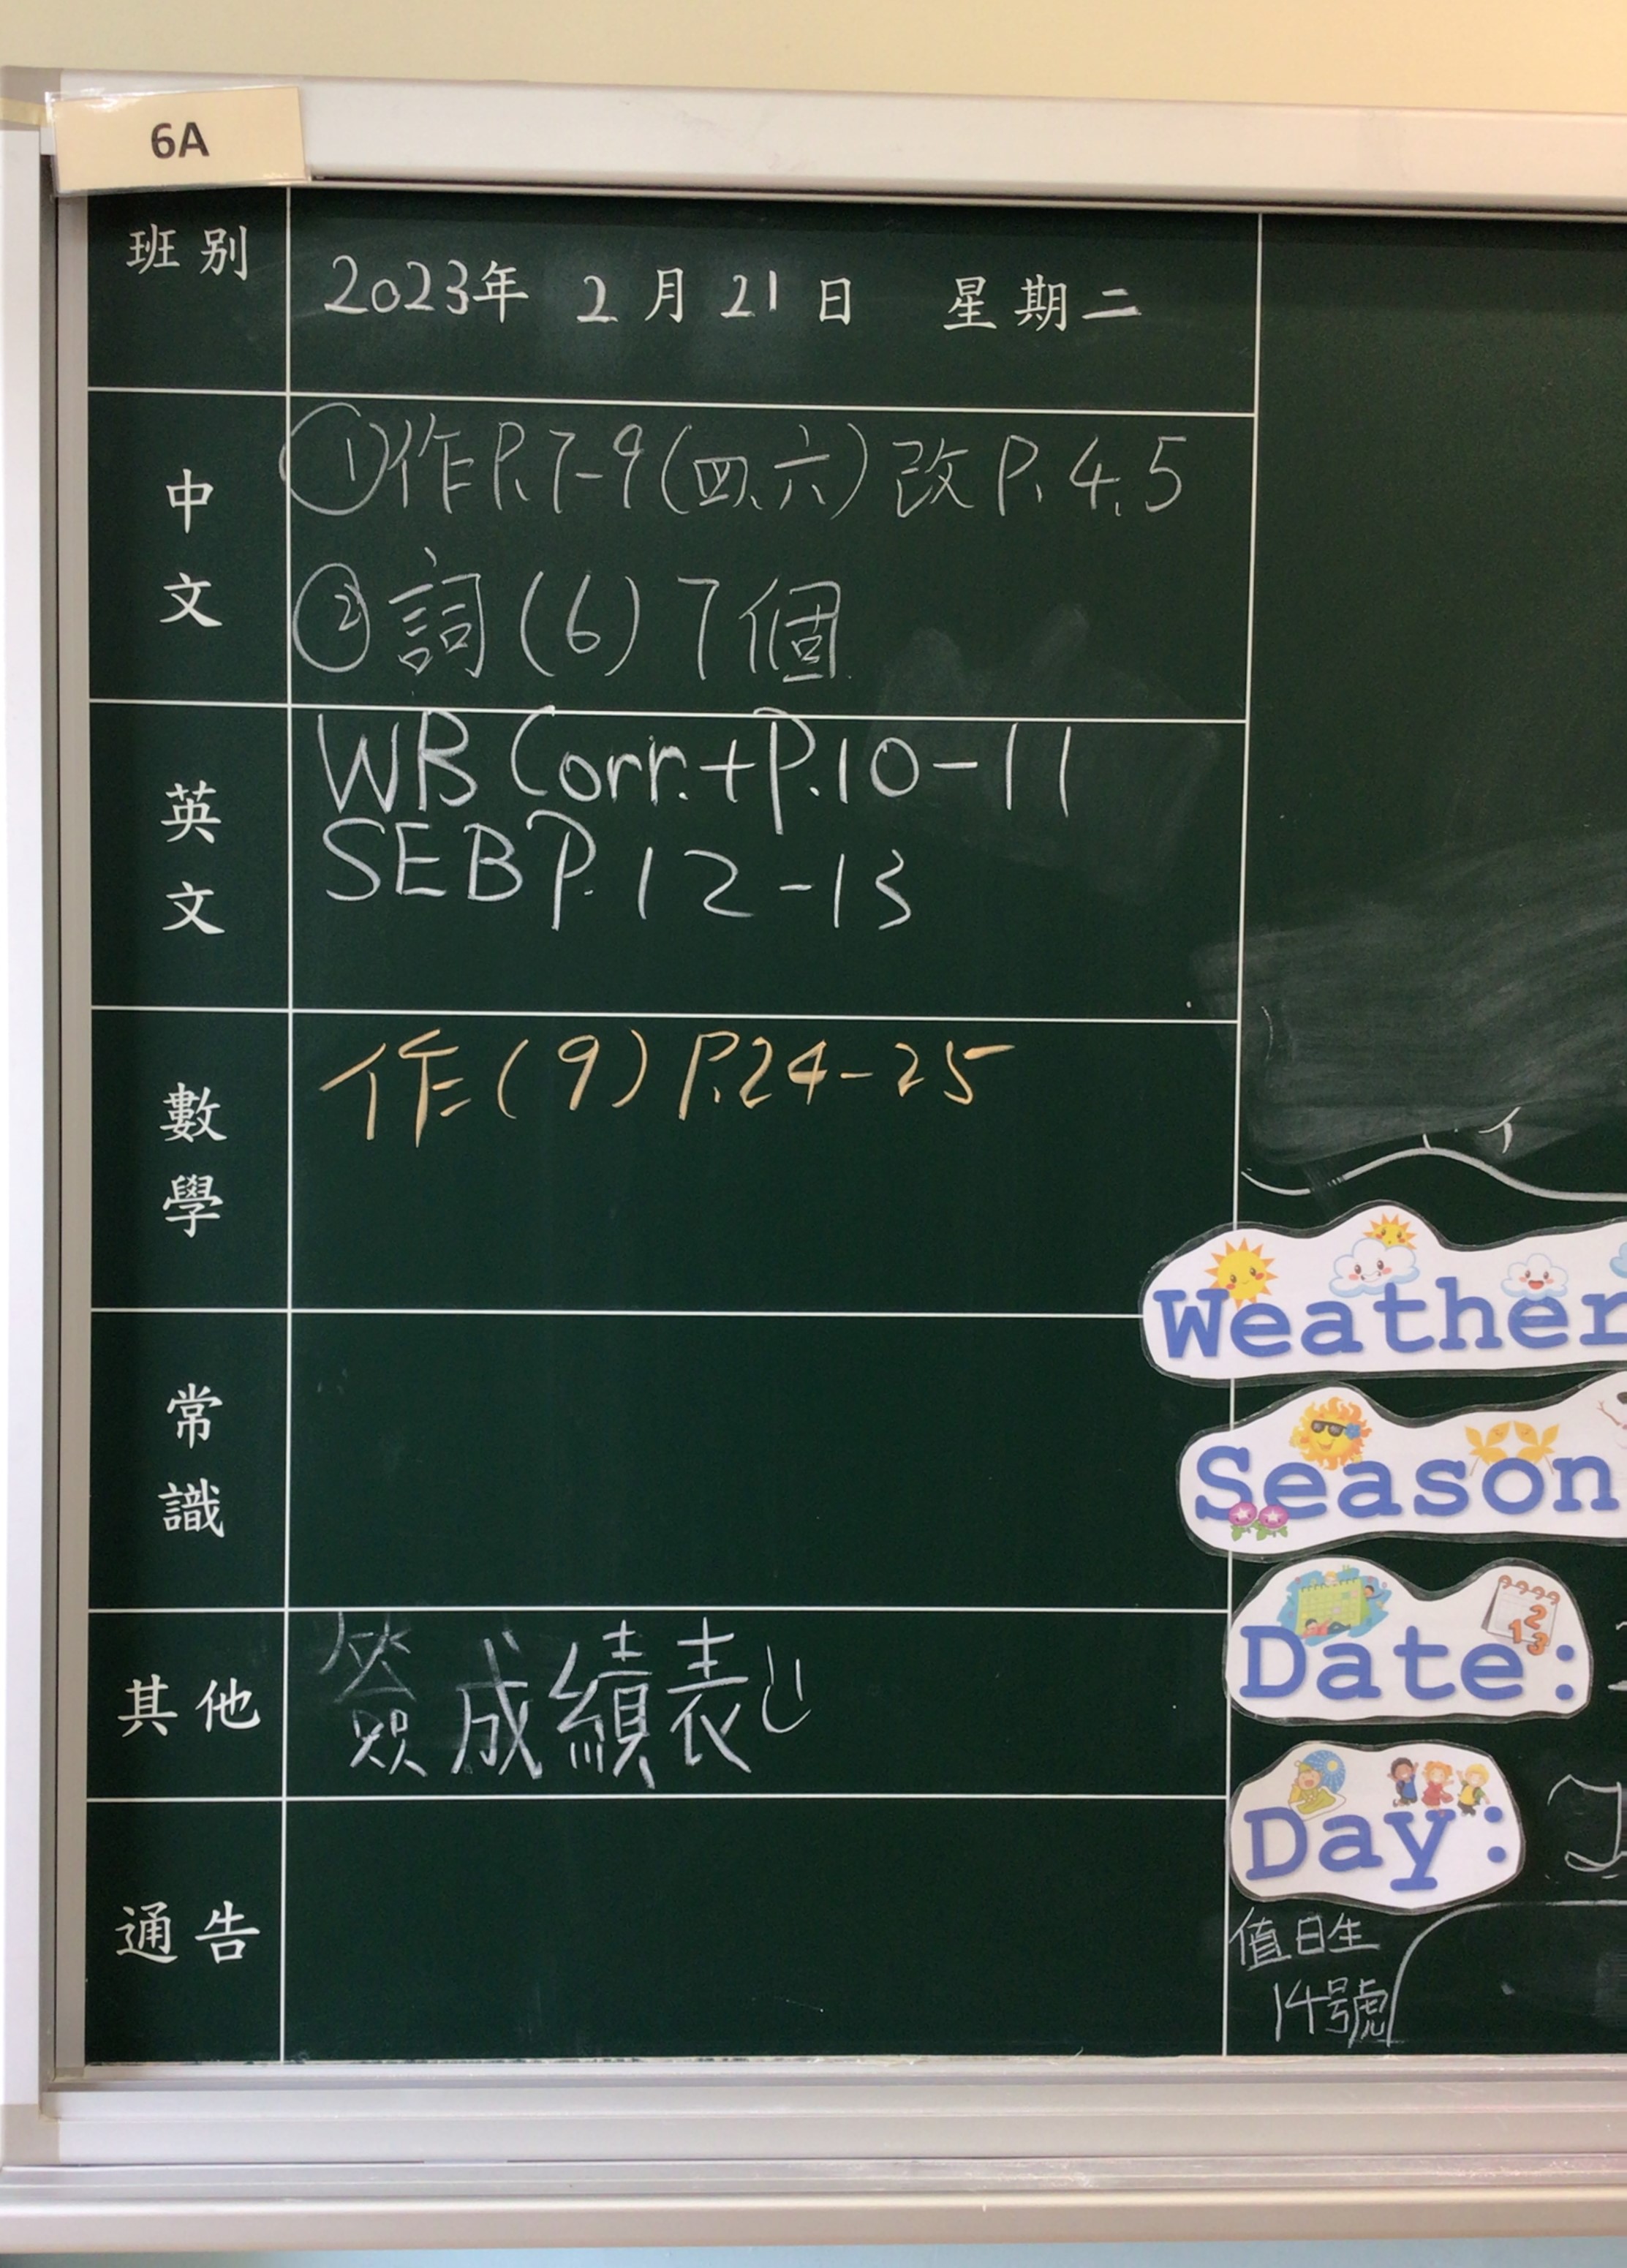 6A
班別
2023年 2 月 21 日 星期二
中文
①作P.7-9(四、六)改P.4,5
②詞(6)7個
英文
WB Corr.+P.10-11
SEB P.12-13
數學
作(9)P.24-25
常識
其他
簽成績表
通告
Weather
Season
Date:
Day:
值日生
14號